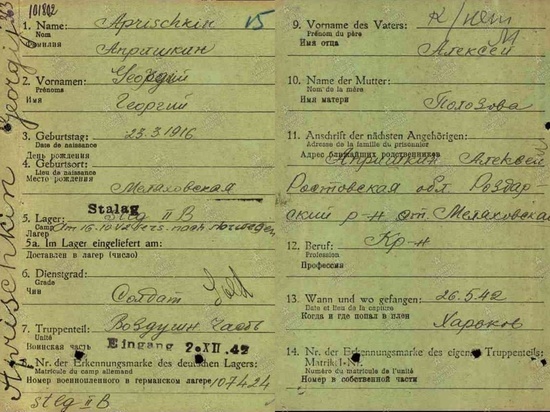 101802
Aprischkin Georgij
1. Name: Aprischkin
Nom
Фамилия Апришкин
2. Vornamen: Georgij
Prénoms
Имя Георгий
3. Geburtstag: 23.3.1916
Date de naissance
День рождения
4. Geburtsort:
Lieu de naissance
Место рождения
Мелаховская
Stalag
5. Lager: Stlg II B
Camp Im 16.10.42 vers. nach Norwegen
Лагерь
5a. Im Lager eingeliefert am:
Доставлен в лагерь (число)
6. Dienstgrad:
Grade
Чин Солдат
7. Truppenteil: Воздушн. часть
Unité
Воинская часть Eingang 2. XII. 42
8. Nr. der Erkennungsmarke des deutschen Lagers:
Matricule du camp allemand
Номер военнопленного в германском лагере 107424
stlg II B
9. Vorname des Vaters:
Prénom du père
Имя отца Алексей
10. Name der Mutter:
Nom de la mère
Имя матери Полозова
11. Anschrift der nächsten Angehörigen:
Adresse de la famille du prisonnier
Адрес ближайших родственников
Апришкин Алексей
Ростовская обл. Роздар-
ский р-н ст. Мелаховская
12. Beruf: Кр-н
Profession
Профессия
13. Wann und wo gefangen: 26.5.42
Date et lieu de la capture
Когда и где попал в плен
Харьков
14. Nr. der Erkennungsmarke des eigenen Truppenteils:
Matrikl.-Nr.
Numéro du matricule de l'unité
Номер в собственной части